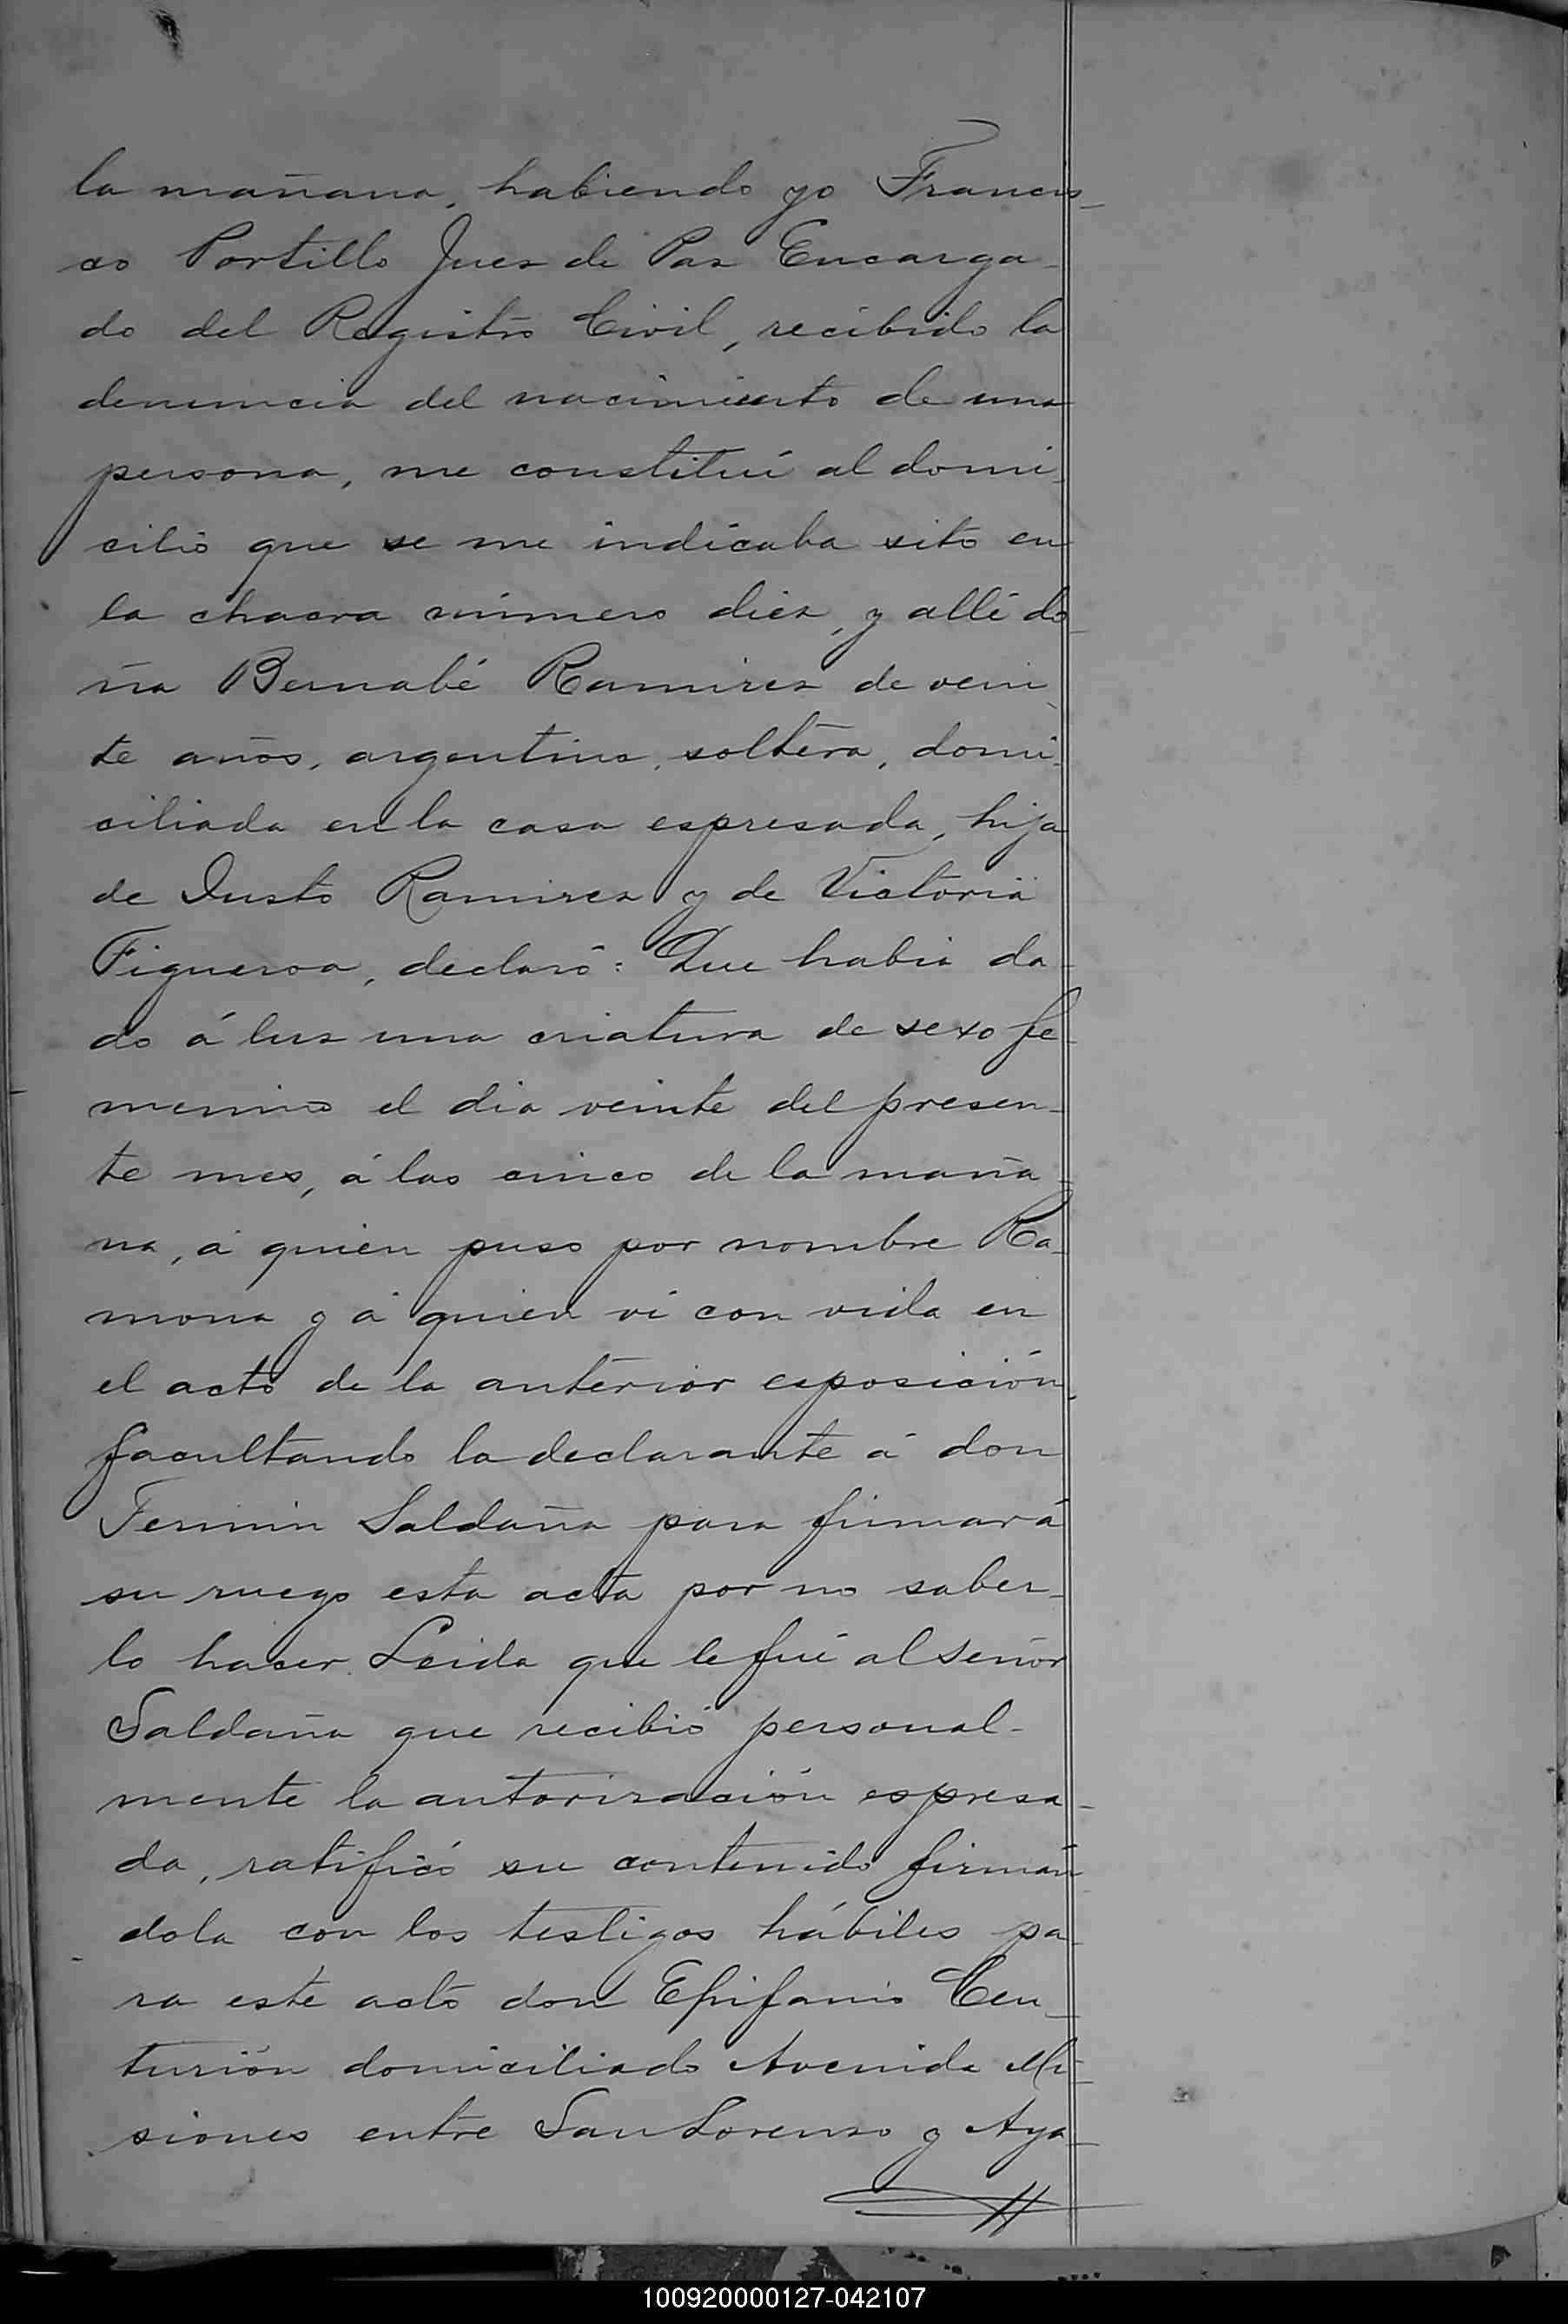 la mañana, habiendo yo Francis-
co Portillo Juez de Paz Encarga-
do del Registro Civil, recibido la
denuncia del nacimiento de una
persona, me constituí al domi-
cilio que se me indicaba sito en
la chacra número diez, y allí do-
ña Bernabé Ramirez de vein-
te años, argentina, soltera, domi-
ciliada en la casa espresada, hija
de Justo Ramirez y de Victoria
Figueroa, declaró: Que habia da-
do á luz una criatura de sexo fe-
menino el dia veinte del presen-
te mes, á las cinco de la maña-
na, á quien puso por nombre Ra-
mona y á quien ví con vida en
el acto de la anterior esposición,
facultando la declarante á don
Fermin Saldaña para firmar á
su ruego esta acta por no saber-
lo hacer. Leida que le fué al señor
Saldaña que recibió personal-
mente la autorización espresa-
da, ratificó su contenido firmán-
dola con los testigos hábiles pa-
ra este acto don Epifanio Cen-
turión domiciliado Avenida Mi-
siones entre San Lorenzo y Aya-
100920000127-042107